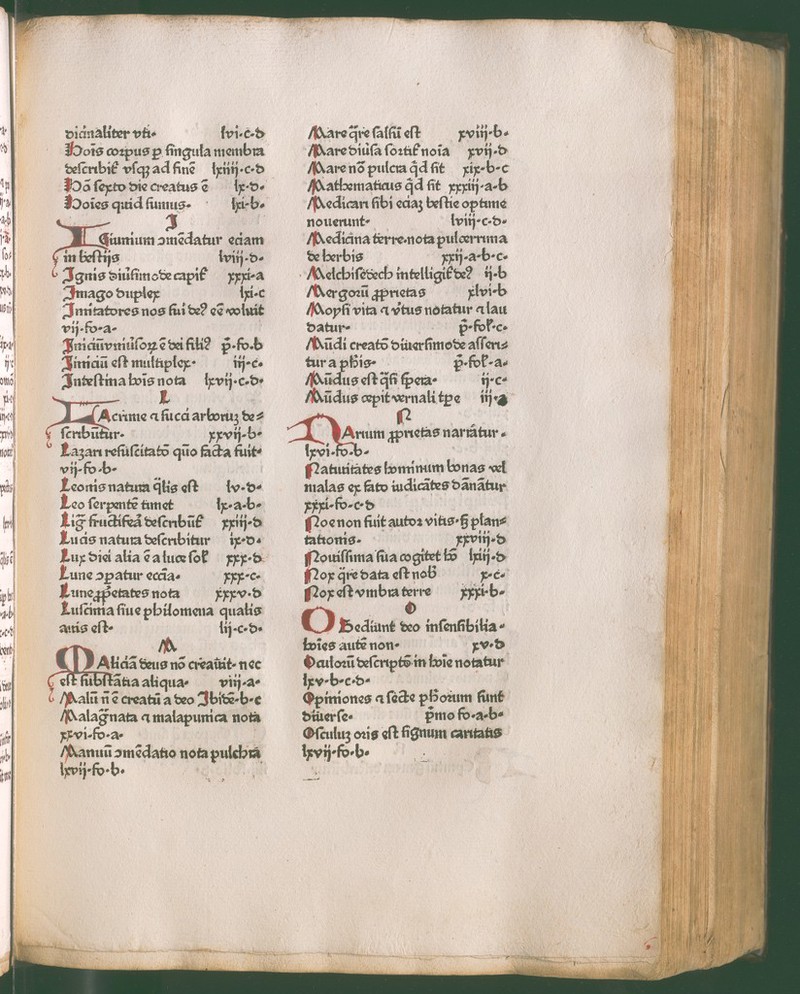 diciãnaliter vti· lvi·c·d
Hoĩs corpus ꝑ singula membra
describit᷑ vsqꝫ ad finẽ lxiiij·c·d
Hõ sexto die creatus ẽ lx·d·
Hoĩes quid sumus· lxi·b·
I
IEiunium ↄmẽdatur eciam
in bestijs lviij·d·
Ignis diũsimode capit᷑ xxxi·a
Imago duplex lxi·c
Imitatores nos sui de? eẽ voluit
vij·fo·a·
Iniciũ vniũsoꝝ ẽ dei fili? p̃·fo·b
Iniciũ est multiplex· iij·c·
Intestina hoĩs nota lxvij·c·d·
L
LAcrime ⁊ succi arboruꝫ de⸗
scribũtur· xxvij·b·
Lazari resuscitatõ quõ facta fuit·
vij·fo·b·
Leonis natura q̃lis est lv·d·
Leo serpentẽ timet lx·a·b·
Lig̃ fructifea᷑ describũt᷑ xxiij·d
Lucis natura describitur ix·d·
Lux diei alia ẽ a luce sol᷑ xxx·d
Lune ↄpatur eccĩa· xxx·c·
Lune ꝓp̃etates nota xxxv·d
Luscinia siue philomena qualis
auis est· lij·c·d·
M
MAliciã deus nõ creauit· nec
est substãtia aliqua· viij·a·
Malũ ñ ẽ creatũ a deo Ibidẽ·b·c
Malag̃nata ⁊ malapunica nota
xxvi·fo·a·
Manuũ ↄmẽdatio nota pulchra
lxvij·fo·b·
Mare q̃re salsũ est xviij·b·
Mare diũsa sortit᷑ noĩa xvij·d
Mare nõ pulcra q̃d sit xix·b·c
Mathematicus q̃d sit xxxiij·a·b
Medicari sibi eciaꝫ bestie optime
nouerunt· lviij·c·d·
Medicina terre·nota pulcerrima
de herbis xxij·a·b·c·
Melchisedech intelligit᷑ de? ij·b
Mergorũ ꝓprietas xlvi·b
Moysi vita ⁊ v̾tus notatur ⁊ lau
datur· p̃·fol᷑·c·
Mũdi creatõ diuersimode asseri⸗
tur a ph̃is· p̃·fol᷑·a·
Mũdus est q̃si spera· ij·c·
Mũdus cepit vernali tp̃e iij·a
N
NArium ꝓprietas narratur·
lxvi·fo·b·
Natiuitates hominum bonas vel
malas ex fato iudicãtes dãnãtur
xxxi·fo·c·d
Noe non fuit autor vitis·ꝫ plan⸗
tationis· xxviij·d
Nouissima sua cogitet hõ lxiij·d
Nox q̃re data est nob̃ x·c·
Nox est vmbra terre xxxi·b·
O
OBediunt deo insensibilia·
hoĩes autẽ non· xv·d
Oculorũ descriptõ in hoĩe notatur
lxv·b·c·d·
Opiniones ⁊ secte ph̃orum sunt
diuerse· p̃mo fo·a·b·
Osculuꝫ oris est signum caritatis
lxvij·fo·b·